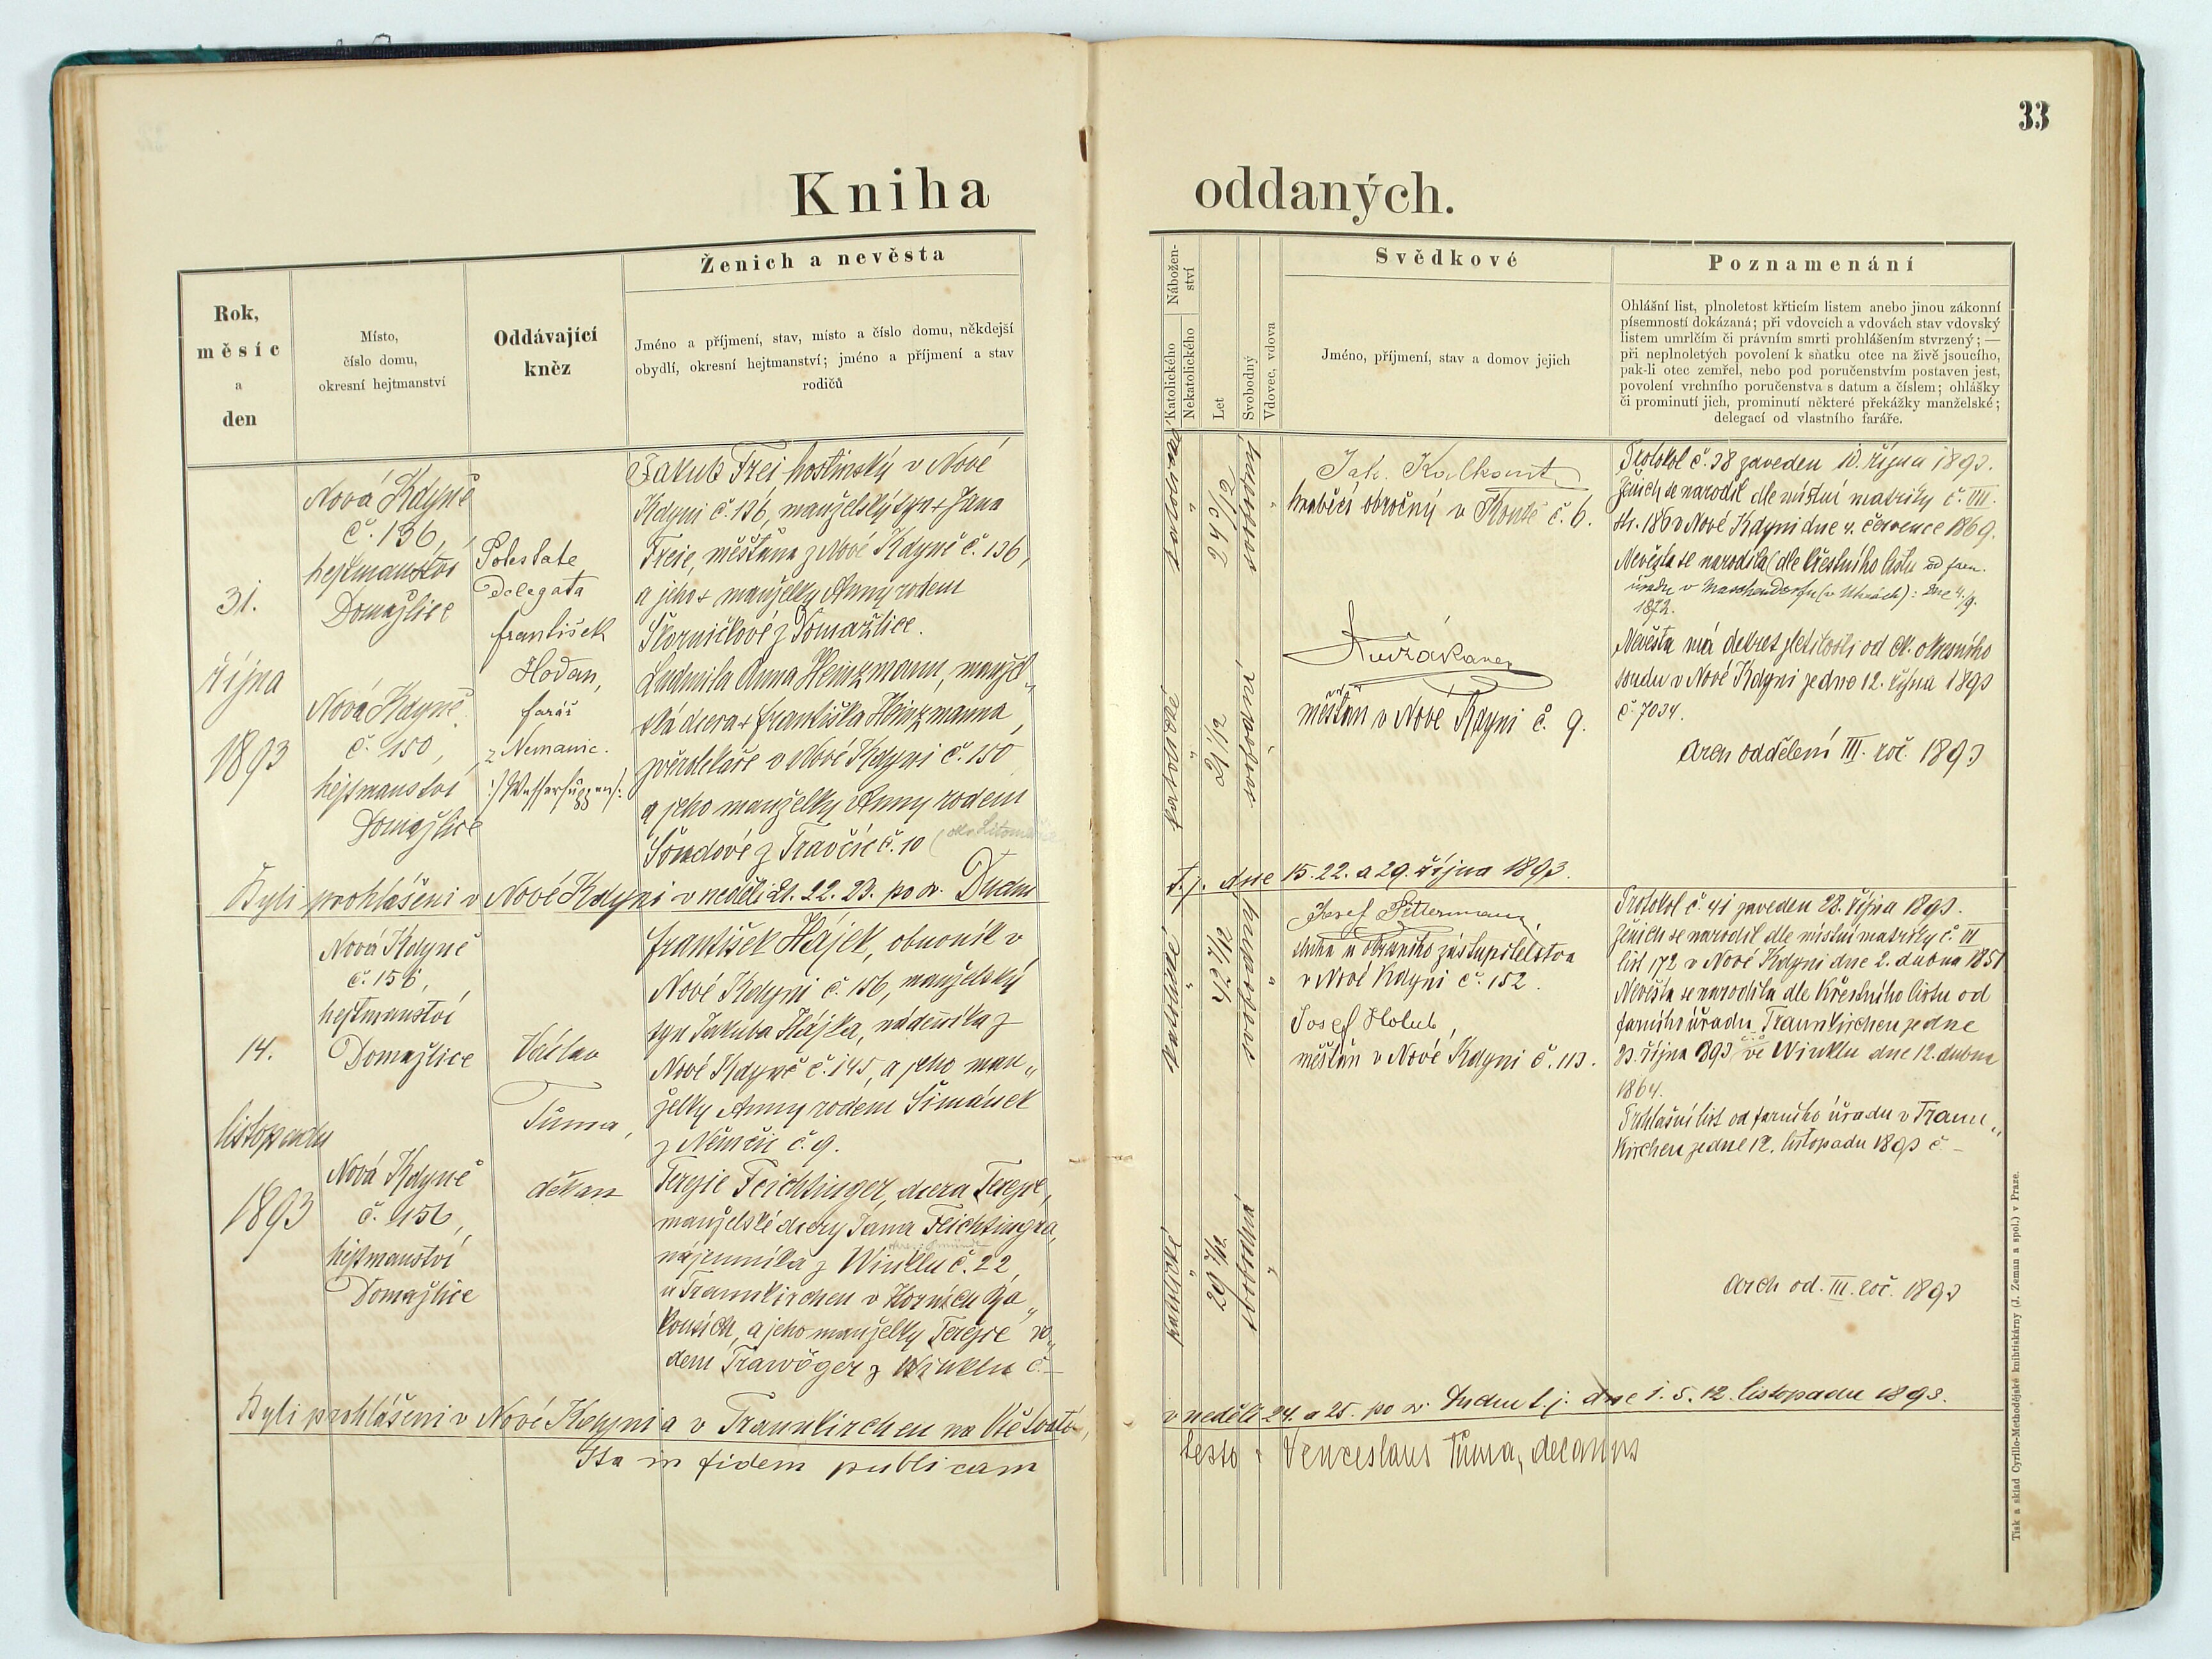 33
Kniha oddaných.
Rok,
měsíc
a
den
Místo,
číslo domu,
okresní hejtmanství
Oddávající
kněz
Ženich a nevěsta
Jméno a příjmení, stav, místo a číslo domu, někdejší
obydlí, okresní hejtmanství; jméno a příjmení a stav
rodičů
Nábožen-
ství
Katolického
Nekatolického
Let
Svobodný
Vdovec, vdova
Svědkové
Jméno, příjmení, stav a domov jejich
Poznamenání
Ohlášní list, plnoletost křticím listem anebo jinou zákonní
písemností dokázaná; při vdovcích a vdovách stav vdovský
listem umrlčím či právním smrti prohlášením stvrzený; —
při neplnoletých povolení k sňatku otce na živě jsoucího,
pak-li otec zemřel, nebo pod poručenstvím postaven jest,
povolení vrchního poručenstva s datum a číslem; ohlášky
či prominutí jich, prominutí některé překážky manželské;
delegací od vlastního faráře.
31.
října
1893
Nová Kdyně
č. 136,
hejtmanství
Domažlice
Nová Kdyně
č. 150,
hejtmanství
Domažlice
Potestate
Delegata
František
Hodan,
farář
z Nemanic.
Jakub Frei hostinský v Nové
Kdyni č. 136, manželský syn + Jana
Freie, měšťana z Nové Kdyně č. 136,
a jeho + manželky Anny rodem
z Domažlice.
Ludmila Anna Heinzmann, manžel„
ská dcera + Františka Heinzmanna,
zvěrolékaře v Nové Kdyni č. 150
a jeho manželky Anny rodem
z Travčic č. 10
katolické
"
24 3/12
svobodný
"
katolické
"
21 1/12
svobodná
"
Jak. Kalkant
hraběcí obročný v Koutě č. 6.
měšťan v Nové Kdyni č. 9.
Protokol č. 38 zaveden 10. října 1893.
Ženich se narodil dle místní matriky č. III.
str. 186 v Nové Kdyni dne 4. července 1869.
Nevěsta se narodila (dle křestního listu od farn.
úřadu v Maschendorfu (v Uhrách): dne 4./9.
1872.
Nevěsta má dekret zletilosti od ck. okresního
soudu v Nové Kdyni ze dne 12. října 1893
č. 7034.
Arch oddělení III. roč. 1893
Byli prohlášeni v Nové Kdyni v neděli 21. 22. 23. po sv. Duchu t. j. dne 15. 22. a 29. října 1893.
14.
listopadu
1893
Nová Kdyně
č. 156,
hejtmanství
Domažlice
Nová Kdyně
č. 156,
hejtmanství
Domažlice
Václav
Tůma,
děkan
František Hájek, obuvník v
Nové Kdyni č. 156, manželský
syn Jakuba Hájka, nádeníka z
Nové Kdyně č. 145, a jeho man„
želky Anny rodem Šimánek
z Němčic č. 9.
Terezie Feichtinger, dcera Terezie,
manželské dcery Jana Feichtingra,
nájemníka z Winklu č. 22,
u Traunkirchen v Horních Ra„
kousích, a jeho manželky Terezie ro„
dem Trawöger z Winklu č. –
katolické
"
42 7/12
svobodný
"
katolické
"
29 7/12
svobodná
"
Josef Pittermann,
sluha u okresního zastupitelstva
v Nové Kdyni č. 152.
Josef Holub,
měšťan v Nové Kdyni č. 113.
Protokol č. 41 zaveden 28. října 1893.
Ženich se narodil dle místní matriky č. III
list 172 v Nové Kdyni dne 2. dubna 1851
Nevěsta se narodila dle křestního listu od
farního úřadu Traunkirchen ze dne
23. října 1893 ve Winklu dne 12. dubna
1864.
Ohlašní list od farního úřadu v Traun„
kirchen ze dne 12. listopadu 1893 č –
Arch od. III. roč. 1893
Byli prohlášeni v Nové Kdyni a v Traunkirchen na v neděli 24. a 25. po sv. Duchu t. j. dne 1. 5. 12. listopadu 1893.
Ita in fidem publicam testor Venceslaus Tůma, decanus
Tisk a sklad Cyrillo-Methodějské knihtiskárny (J. Zeman a spol.) v Praze.